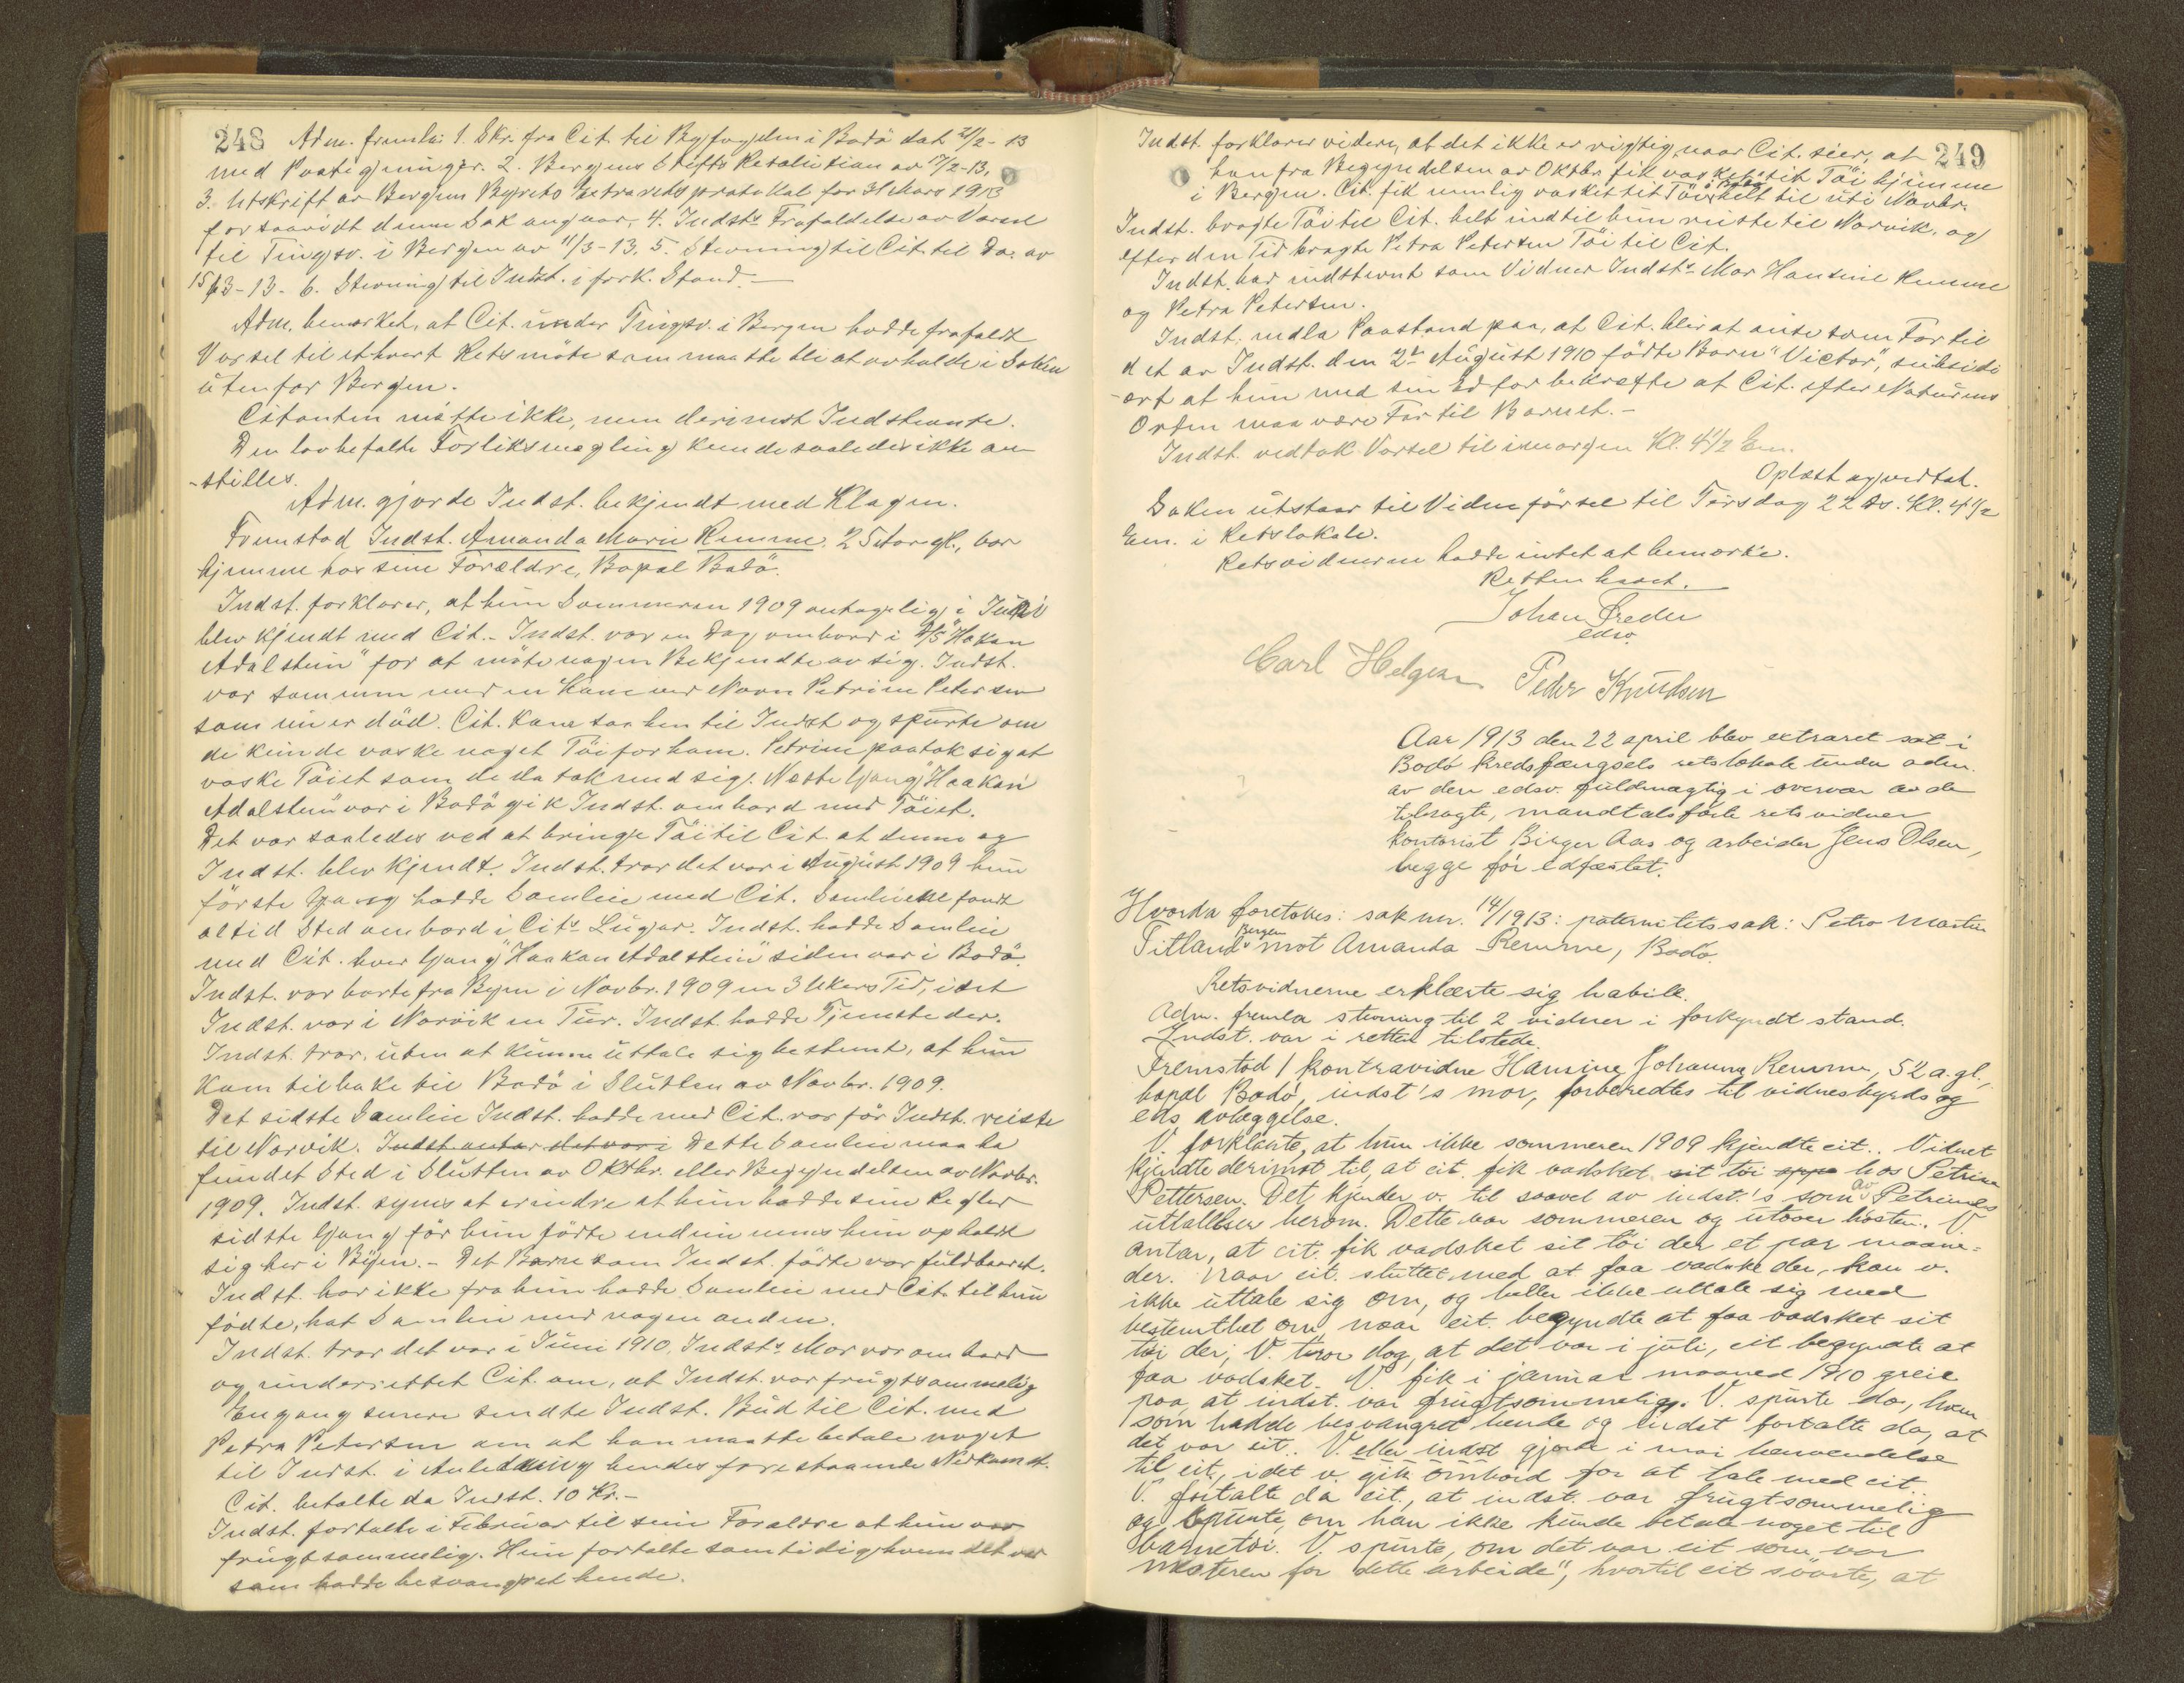 248
Adm. fremla: 1. Skr. fra Cit. til Byfogden i Bodö dat. 21/2-13
med Paategninger. 2. Bergens Stifts Resolution av 17/2-13,
3. Utskrift av Bergens Byrets Extraretsprotokol for 31 Mars 1913
forsaavidt denne Sak angaar, 4. Indsts Frafaldelse av Varsel
til Tingsv. i Bergen av 11/3-13. 5. Stevning til Cit. til Do. av
15/3-13- 6. Stevning til Indst. i fork. Stand.-
Adm. bemerket, at Cit. under Tingsv. i Bergen hadde frafaldt
Varsel til ethvert Retsmöte som maatte bli at avholde i Saken
utenfor Bergen.
Citanten mötte ikke, men derimot Indstevnte.
Den lovbefalte Forliksmegling kunde saaledes ikke an-
-stilles.
Adm. gjorde Indst. bekjendt med Klagen.
Fremstod Indst. Amanda Marie Remme. 25 Aar gl., bor
hjemme hos sine Forældre, Bopæl Bodö.
Indst. forklarer, at hun Sommeren 1909 antagelig i Juni
blev kjendt med Cit.- Indst. var en Dag ombord i D/S "Hakon
Adalstein" for at möte nogen Bekjendte av sig. Indst.
var sammen med en Kone ved Navn Petrine Petersen
som nu er död. Cit. kom saa hen til Indst og spurte om
de kunde vaske noget Töi for ham. Petrine paatok sig at
vaske Töiet som de da tok med sig. Neste Gang "Haakon
Adalstein" var i Bodö gik Indst. ombord med Töiet.
Det var saaledes ved at bringe Töi til Cit. at denne og
Indst. blev kjendt. Indst. tror det var i August 1909 hun
förste Gang hadde Samleie med Cit. Samleiene fandt
altid Sted ombord i Cits Lugar. Indst. hadde Samleie
med Cit. hver Gang "Haakon Adalstein" siden var i Bodö.
Indst. var borte fra Byen i Novbr. 1909 en 3 Ukers Tid, idet
Indst. var i Narvik en Tur. Indst. hadde Tjeneste der.
Indst. tror, uten at kunne uttale sig bestemt, at hun
kom tilbake til Bodö i Slutten av Novbr. 1909.
Det sidste Samleie Indst. hadde med Cit. var för Indst. reiste
til Narvik. Indst. antar det var i Dette Samleie maa ha
fundet Sted i Slutten av Oktbr. eller Begyndelsen av Novbr.
1909. Indst. synes at erindre at hun hadde sine Regler
sidste Gang för hun födte endnu mens hun opholdt
sig her i Byen.- Det Barn som Indst. födte var fuldbaaret.
Indst. har ikke fra hun hadde Samleie med Cit. til hun
födte, hat Samleie med nogen anden.
Indst. tror det var i Juni 1910. Indsts Mor var ombord
og underrettet Cit. om, at Indst. var frugtsommelig
Engang senere sendte Indst. Bud til Cit. med
Petra Petersen om at han maatte betale noget
til Indst. i Anledning hendes forestaaende Nedkomst.
Cit. betalte da Indst. 10 Kr.-
Indst. fortalte i Februar til sine Forældre at hun var
frugtsommelig. Hun fortalte samtidig hvem det var
som hadde besvangret hende.
249
Indst. forklarer videre, at det ikke er rigtig naar Cit. sier, at
han fra Begyndelsen av Oktbr. fik vasket sit Töi hjemme
i Bergen. Cit. fik nemlig vasket sit Töi i Bodö helt til uti Novbr.
Indst. bragte Töi til Cit. helt indtil hun reiste til Narvik. og
efter den Tid bragte Petra Petersen Töi til Cit.
Indst. har indstevnt som Vidner Indsts Mor Hansine Remme
og Petra Petersen.
Indst. nedla Paastand paa, at Cit. blir at anse som Far til
det av Indst. den 2d August 1910 födte Barn "Victor", subsidi
-ært at hun med sin Ed faar bekræfte at Cit. efter Naturens
Orden maa være Far til Barnet.-
Indst. vedtok Varsel til imorgen Kl. 4 1/2 Em.
Oplæst og vedtat.
Saken utstaar til Vidneförsel til Tirsdag 22 ds. Kl. 4 1/2
Em. i Retslokale.
Retsvidnerne hadde intet at bemerke.
Retten hævet.
Johan Freder
edsv.
Carl Helgesen Peder Knudsen
Aar 1913 den 22 april blev extraret sat i
Bodö kredsfængsels retslokale under adm.
av den edsv. fuldmægtig i overvær av de
tilsagte, mandtalsförte retsvidner
kontorist Birger Aas og arbeider Jens Olsen,
begge för edfæstet.
Hvorda foretokes: sak nr. 14/1913: paternitetssak: Petro Martin
Titland Bergen mot Amanda Remme, Bodö.
Retsvidnerne erklærte sig habile.
Adm. fremla stevning til 2 vidner i forkyndt stand.
Indst. var i retten tilstede.
Fremstod 1 kontravidne Hansine Johanna Remme, 52 a. gl.,
bopæl Bodö, indst's mor, forberedtes til vidnesbyrds og
eds avlæggelse.
V. forklarte, at hun ikke sommeren 1909 kjendte cit.. Vidnet
kjendte derimot til, at cit. fik vadsket sit töi hos Petrine
Pettersen. Det kjender v. til saavel av indst.'s som av Petrines
uttalelser herom. Dette var sommeren og utover hösten. V
antar, at cit. fik vadsket sit töi der et par maane-
der. Naar cit. sluttet med at faa vadsket der, kan v.
ikke uttale sig om, og heller ikke uttale sig med
bestemthet om naar cit. begyndte at faa vadsket sit
töi der; V. tror dog, at det var i juli, cit begyndte at
faa vadsket. V fik i januar maaned 1910 greie
paa, at indst. var frugtsommelig. V. spurte da, hvem
som hadde besvangret hende og indst fortalte da, at
det var cit.. V. eller indst gjorde i mai henvendelse
til cit., idet v. gik ombord for at tale med cit.
V. fortalte da cit., at indst. var frugtsommelig
og spurte, om han ikke kunde betale noget til
barnetöi. V. spurte, om det var cit som var
mesteren for "dette arbeide", hvortil cit svarte, at